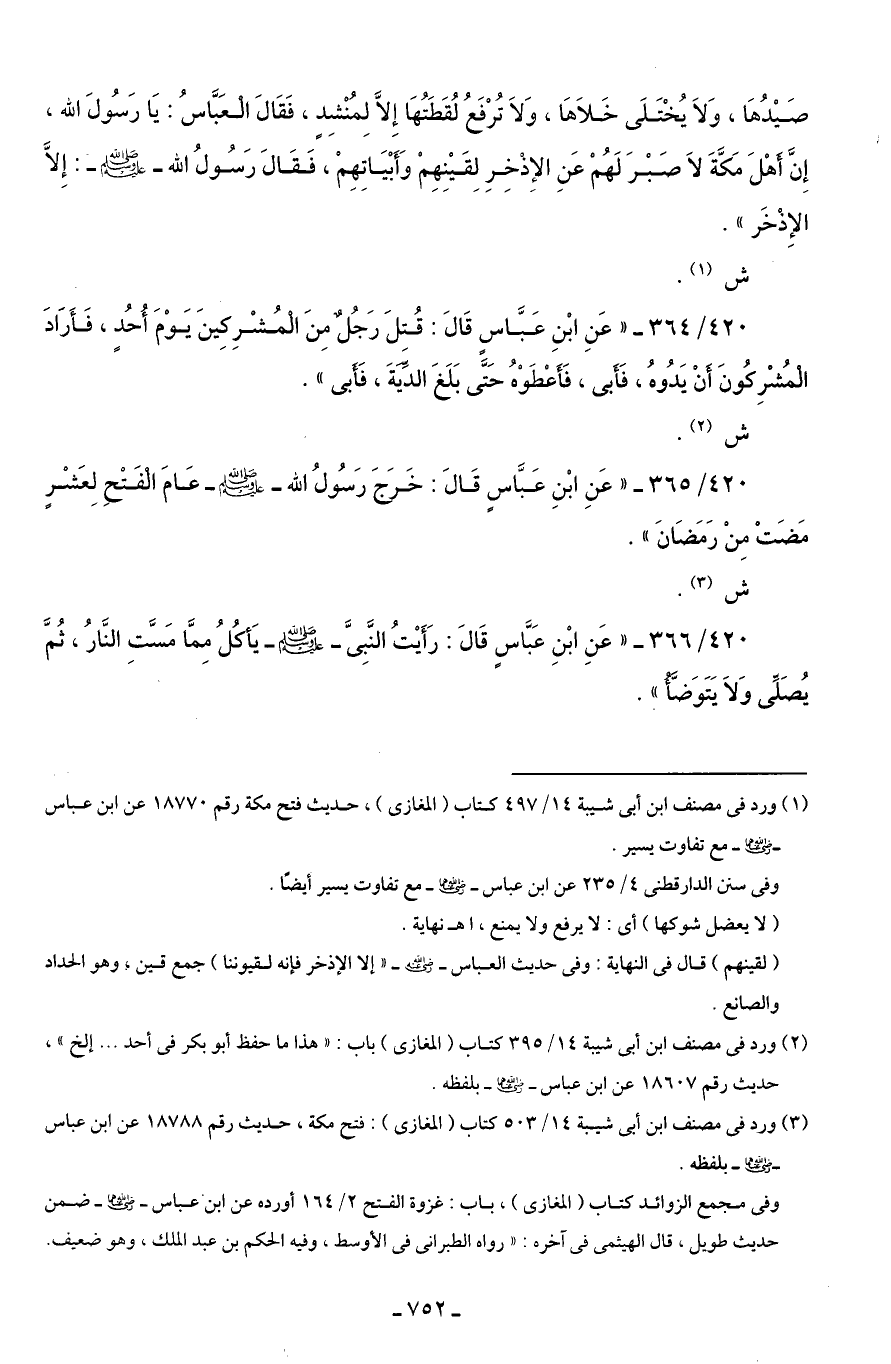 صَيْدُهَا ، وَلَا يُخْتَلَى خَلَاهَا ، وَلَا تُرْفَعُ لُقَطَتُهَا إِلَّا لِمُنْشِدٍ ، فَقَالَ الْعَبَّاسُ : يَا رَسُولَ الله ،
إِنَّ أَهْلَ مَكَّةَ لَا صَبْرَ لَهُمْ عَنِ الإِذْخِرِ لِقَيْنِهِمْ وَأَبْيَاتِهِمْ ، فَقَالَ رَسُولُ الله ـ ﷺ ـ : إِلَّا
الإِذْخَر » .
ش (١) .
٤٢٠/ ٣٦٤ ـ « عَنِ ابْنِ عَبَّاسٍ قَالَ : قُتِلَ رَجُلٌ مِنَ الْمُشْرِكِينَ يَوْمَ أُحُدٍ ، فَأَرَادَ
الْمُشْرِكُونَ أَنْ يَدُوهُ ، فَأَبى ، فَأَعْطَوْهُ حَتَّى بَلَغَ الدِّيَةَ ، فَأَبى » .
ش (٢) .
٤٢٠/ ٣٦٥ ـ « عَنِ ابْنِ عَبَّاسٍ قَالَ : خَرَجَ رَسُولُ الله ـ ﷺ ـ عَامَ الْفَتْحِ لِعَشْرٍ
مَضَتْ مِنْ رَمَضَانَ » .
ش (٣) .
٤٢٠/ ٣٦٦ ـ « عَنِ ابْنِ عَبَّاسٍ قَالَ : رَأَيْتُ النَّبِىَّ ـ ﷺ ـ يَأكُلُ مِمَّا مَسَّتِ النَّارُ ، ثُمَّ
يُصَلِّى وَلَا يَتَوَضَّأُ » .
(١) ورد فى مصنف ابن أبى شيبة ١٤/ ٤٩٧ كتاب ( المغازى ) ، حديث فتح مكة رقم ١٨٧٧٠ عن ابن عباس
ـ رضي الله عنهما ـ مع تفاوت يسير .
وفى سنن الدارقطنى ٤/ ٢٣٥ عن ابن عباس ـ رضي الله عنهما ـ مع تفاوت يسير أيضًا .
( لا يعضل شوكها ) أى : لا يرفع ولا يمنع ، ا هـ نهاية .
( لقينهم ) قال فى النهاية : وفى حديث العباس ـ رضي الله عنه ـ « إلا الإذخر فإنه لقيوننا ) جمع قين ، وهو الحداد
والصانع .
(٢) ورد فى مصنف ابن أبى شيبة ١٤/ ٣٩٥ كتاب ( المغازى ) باب : « هذا ما حفظ أبو بكر فى أحد ... إلخ » ،
حديث رقم ١٨٦٠٧ عن ابن عباس ـ رضي الله عنهما ـ بلفظه .
(٣) ورد فى مصنف ابن أبى شيبة ١٤/ ٥٠٣ كتاب ( المغازى ) : فتح مكة ، حديث رقم ١٨٧٨٨ عن ابن عباس
ـ رضي الله عنهما ـ بلفظه .
وفى مجمع الزوائد كتاب ( المغازى ) ، باب : غزوة الفتح ٢/ ١٦٤ أورده عن ابن عباس ـ رضي الله عنهما ـ ضمن
حديث طويل ، قال الهيثمى فى آخره : « رواه الطبرانى فى الأوسط ، وفيه الحكم بن عبد الملك ، وهو ضعيف.
ـ ٧٥٢ ـ